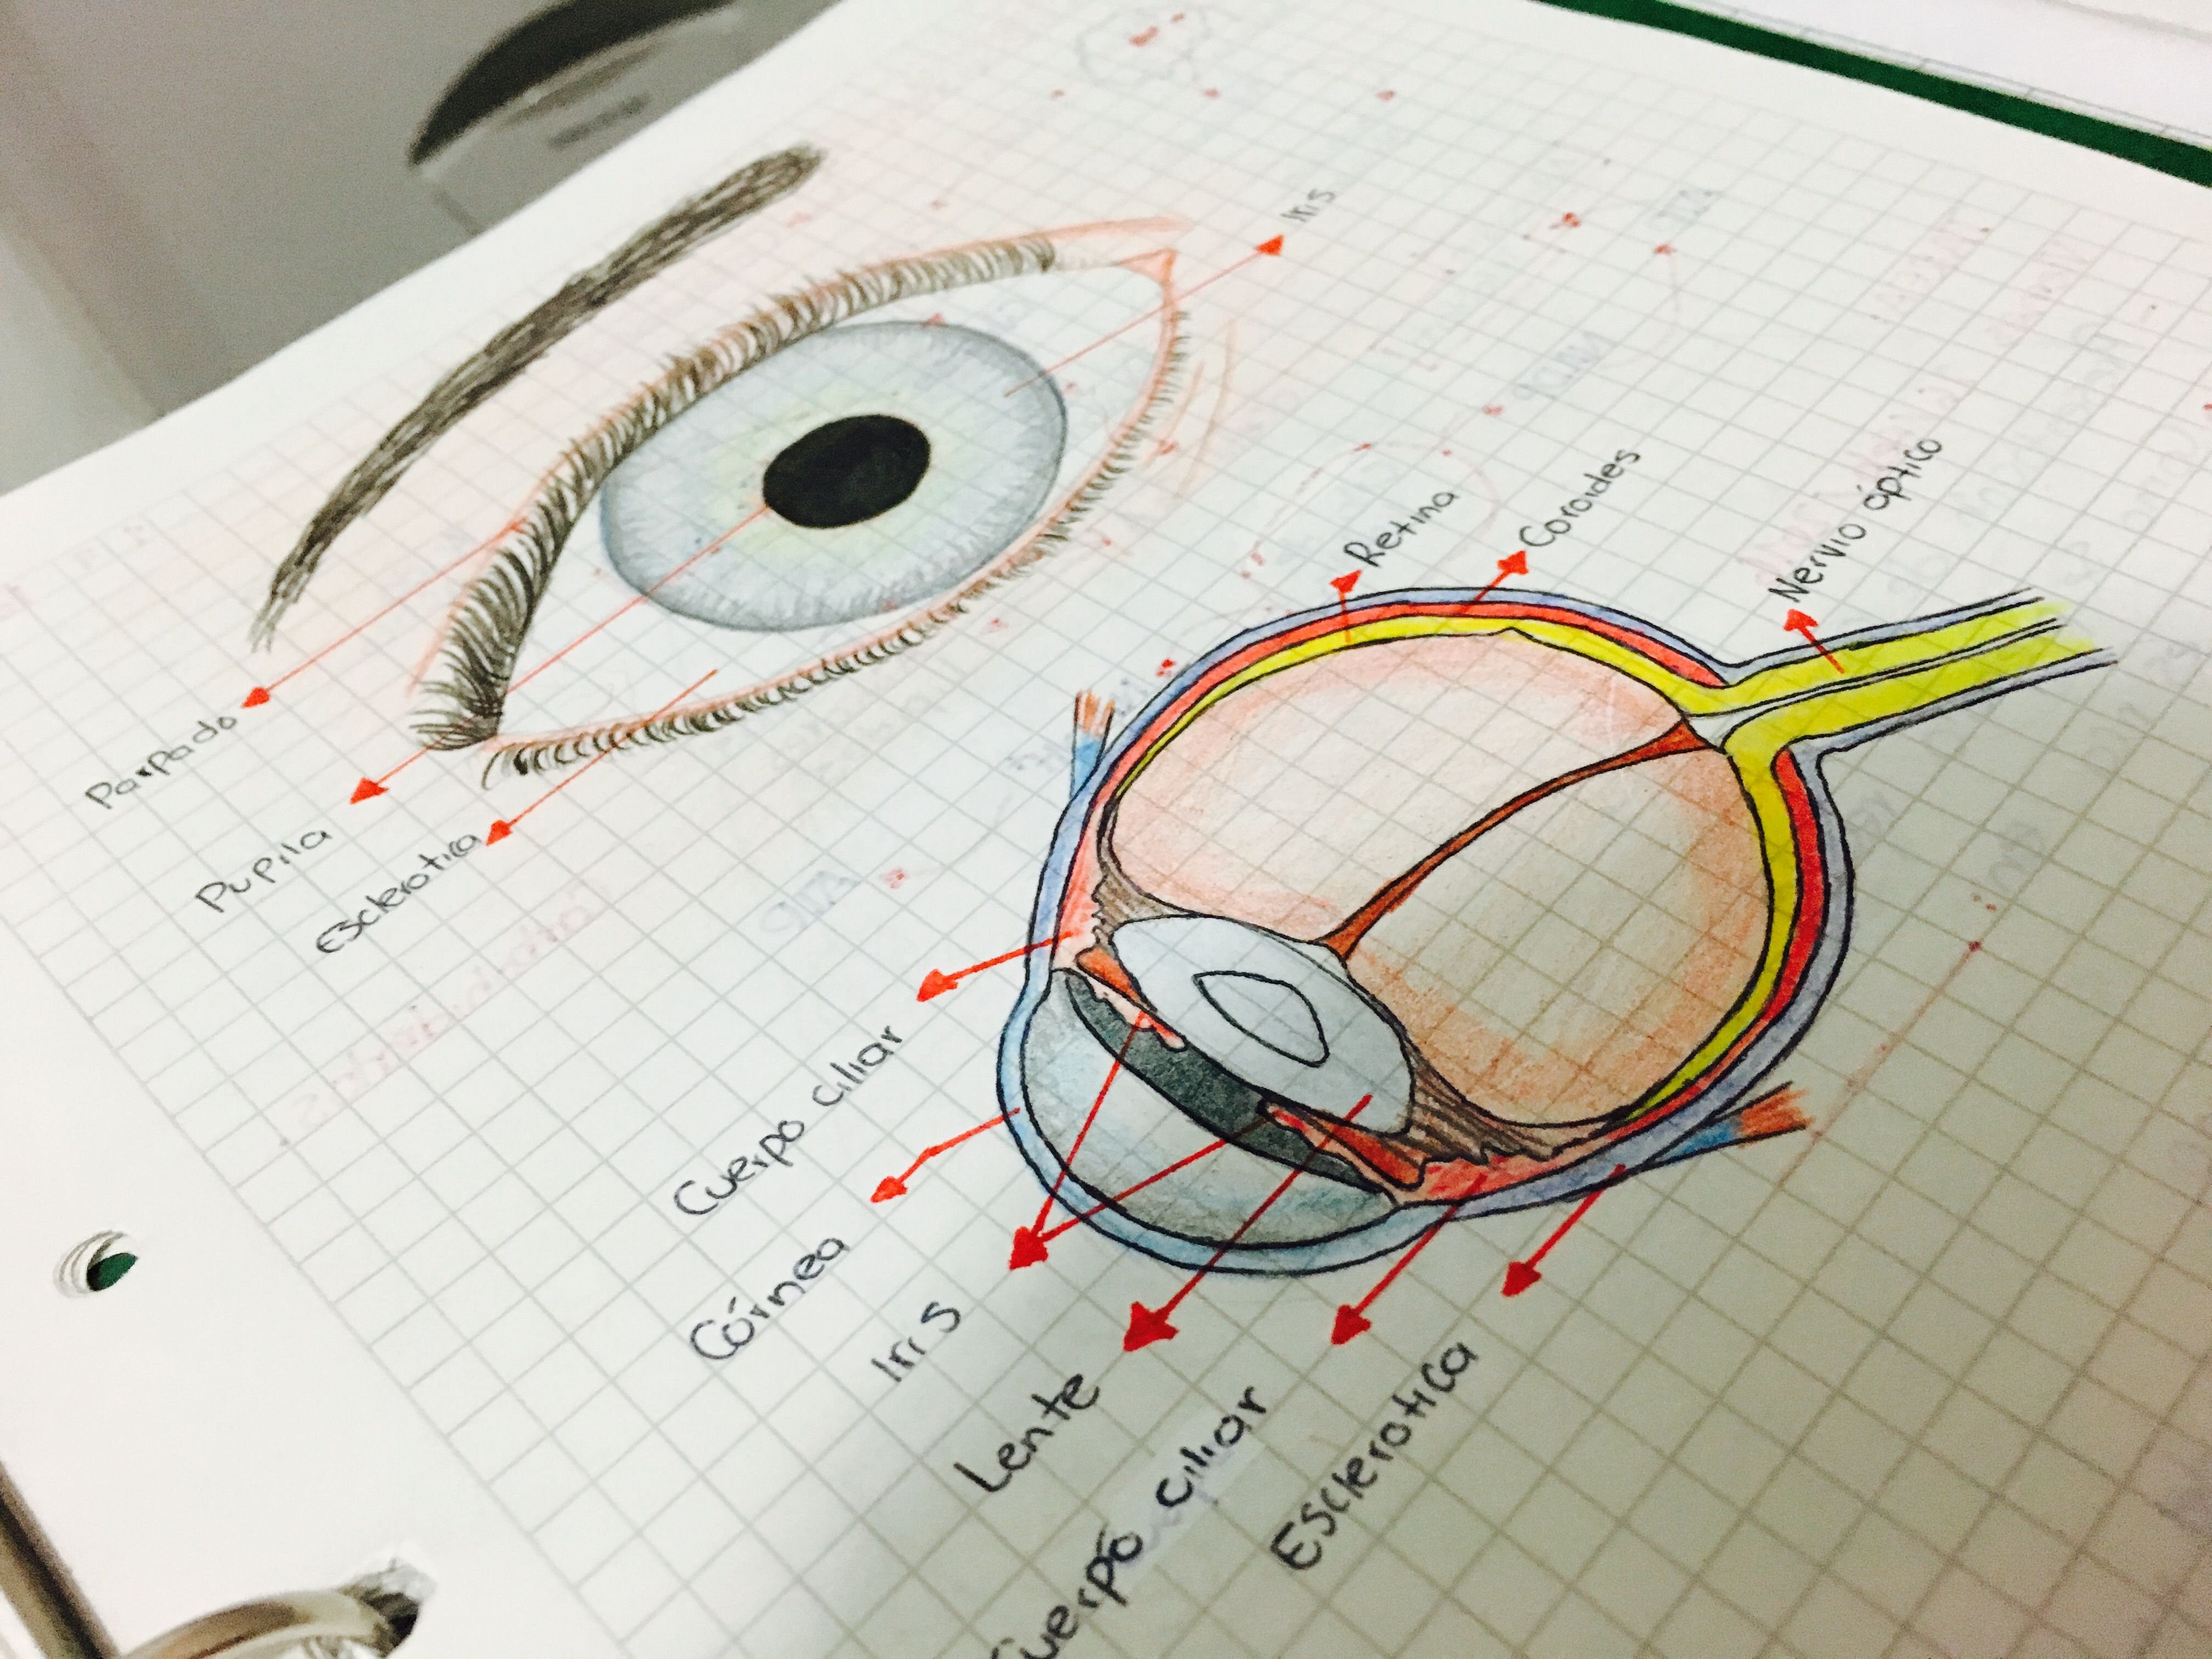 Iris
Parpado
Pupila
Esclerotica
Retina
Coroides
Nervio óptico
Cuerpo ciliar
Córnea
Iris
Lente
Cuerpo ciliar
Esclerotica